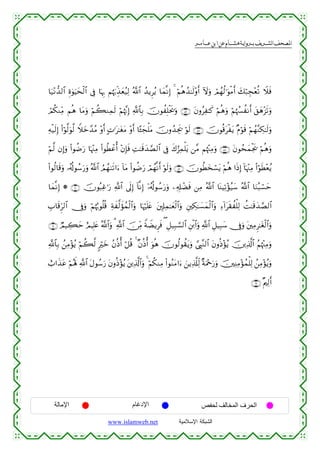 المصحف الشريف برواية هشام عن ابن عامر
فَلَا تُعْجِبْكَ أَمْوَٰلُهُمْ وَلَآ أَوْلَٰدُهُمْ ۚ إِنَّمَا يُرِيدُ ٱللَّهُ لِيُعَذِّبَهُم بِهَا فِى ٱلْحَيَوٰةِ ٱلدُّنْيَا
وَتَزْهَقَ أَنفُسُهُمْ وَهُمْ كَٰفِرُونَ وَيَحْلِفُونَ بِٱللَّهِ إِنَّهُمْ لَمِنكُمْ وَمَا هُم مِّنكُمْ
وَلَٰكِنَّهُمْ قَوْمٌ يَفْرَقُونَ لَوْ يَجِدُونَ مَلْجَـًٔا أَوْ مَغَٰرَٰتٍ أَوْ مُدَّخَلًا لَّوَلَّوْا۟ إِلَيْهِ
وَهُمْ يَجْمَحُونَ وَمِنْهُم مَّن يَلْمِزُكَ فِى ٱلصَّدَقَٰتِ فَإِنْ أُعْطُوا۟ مِنْهَا رَضُوا۟ وَإِن لَّمْ
يُعْطَوْا۟ مِنْهَآ إِذَا هُمْ يَسْخَطُونَ وَلَوْ أَنَّهُمْ رَضُوا۟ مَآ ءَاتَىٰهُمُ ٱللَّهُ وَرَسُولُهُۥ وَقَالُوا۟
حَسْبُنَا ٱللَّهُ سَيُؤْتِينَا ٱللَّهُ مِن فَضْلِهِۦ وَرَسُولُهُۥٓ إِنَّآ إِلَى ٱللَّهِ رَٰغِبُونَ ۞ إِنَّمَا
ٱلصَّدَقَٰتُ لِلْفُقَرَآءِ وَٱلْمَسَٰكِينِ وَٱلْعَٰمِلِينَ عَلَيْهَا وَٱلْمُؤَلَّفَةِ قُلُوبُهُمْ وَفِى ٱلرِّقَابِ
وَٱلْغَٰرِمِينَ وَفِى سَبِيلِ ٱللَّهِ وَٱبْنِ ٱلسَّبِيلِ ۖ فَرِيضَةً مِّنَ ٱللَّهِ ۗ وَٱللَّهُ عَلِيمٌ حَكِيمٌ
وَمِنْهُمُ ٱلَّذِينَ يُؤْذُونَ ٱلنَّبِىَّ وَيَقُولُونَ هُوَ أُذُنٌ ۚ قُلْ أُذُنُ خَيْرٍ لَّكُمْ يُؤْمِنُ بِٱللَّهِ
وَيُؤْمِنُ لِلْمُؤْمِنِينَ وَرَحْمَةٌ لِّلَّذِينَ ءَامَنُوا۟ مِنكُمْ ۚ وَٱلَّذِينَ يُؤْذُونَ رَسُولَ ٱللَّهِ لَهُمْ عَذَابٌ
أَلِيمٌ
الحرف المخالف لحفص الإدغام الإمالة
www.islamweb.net الشبكة الإسلامية